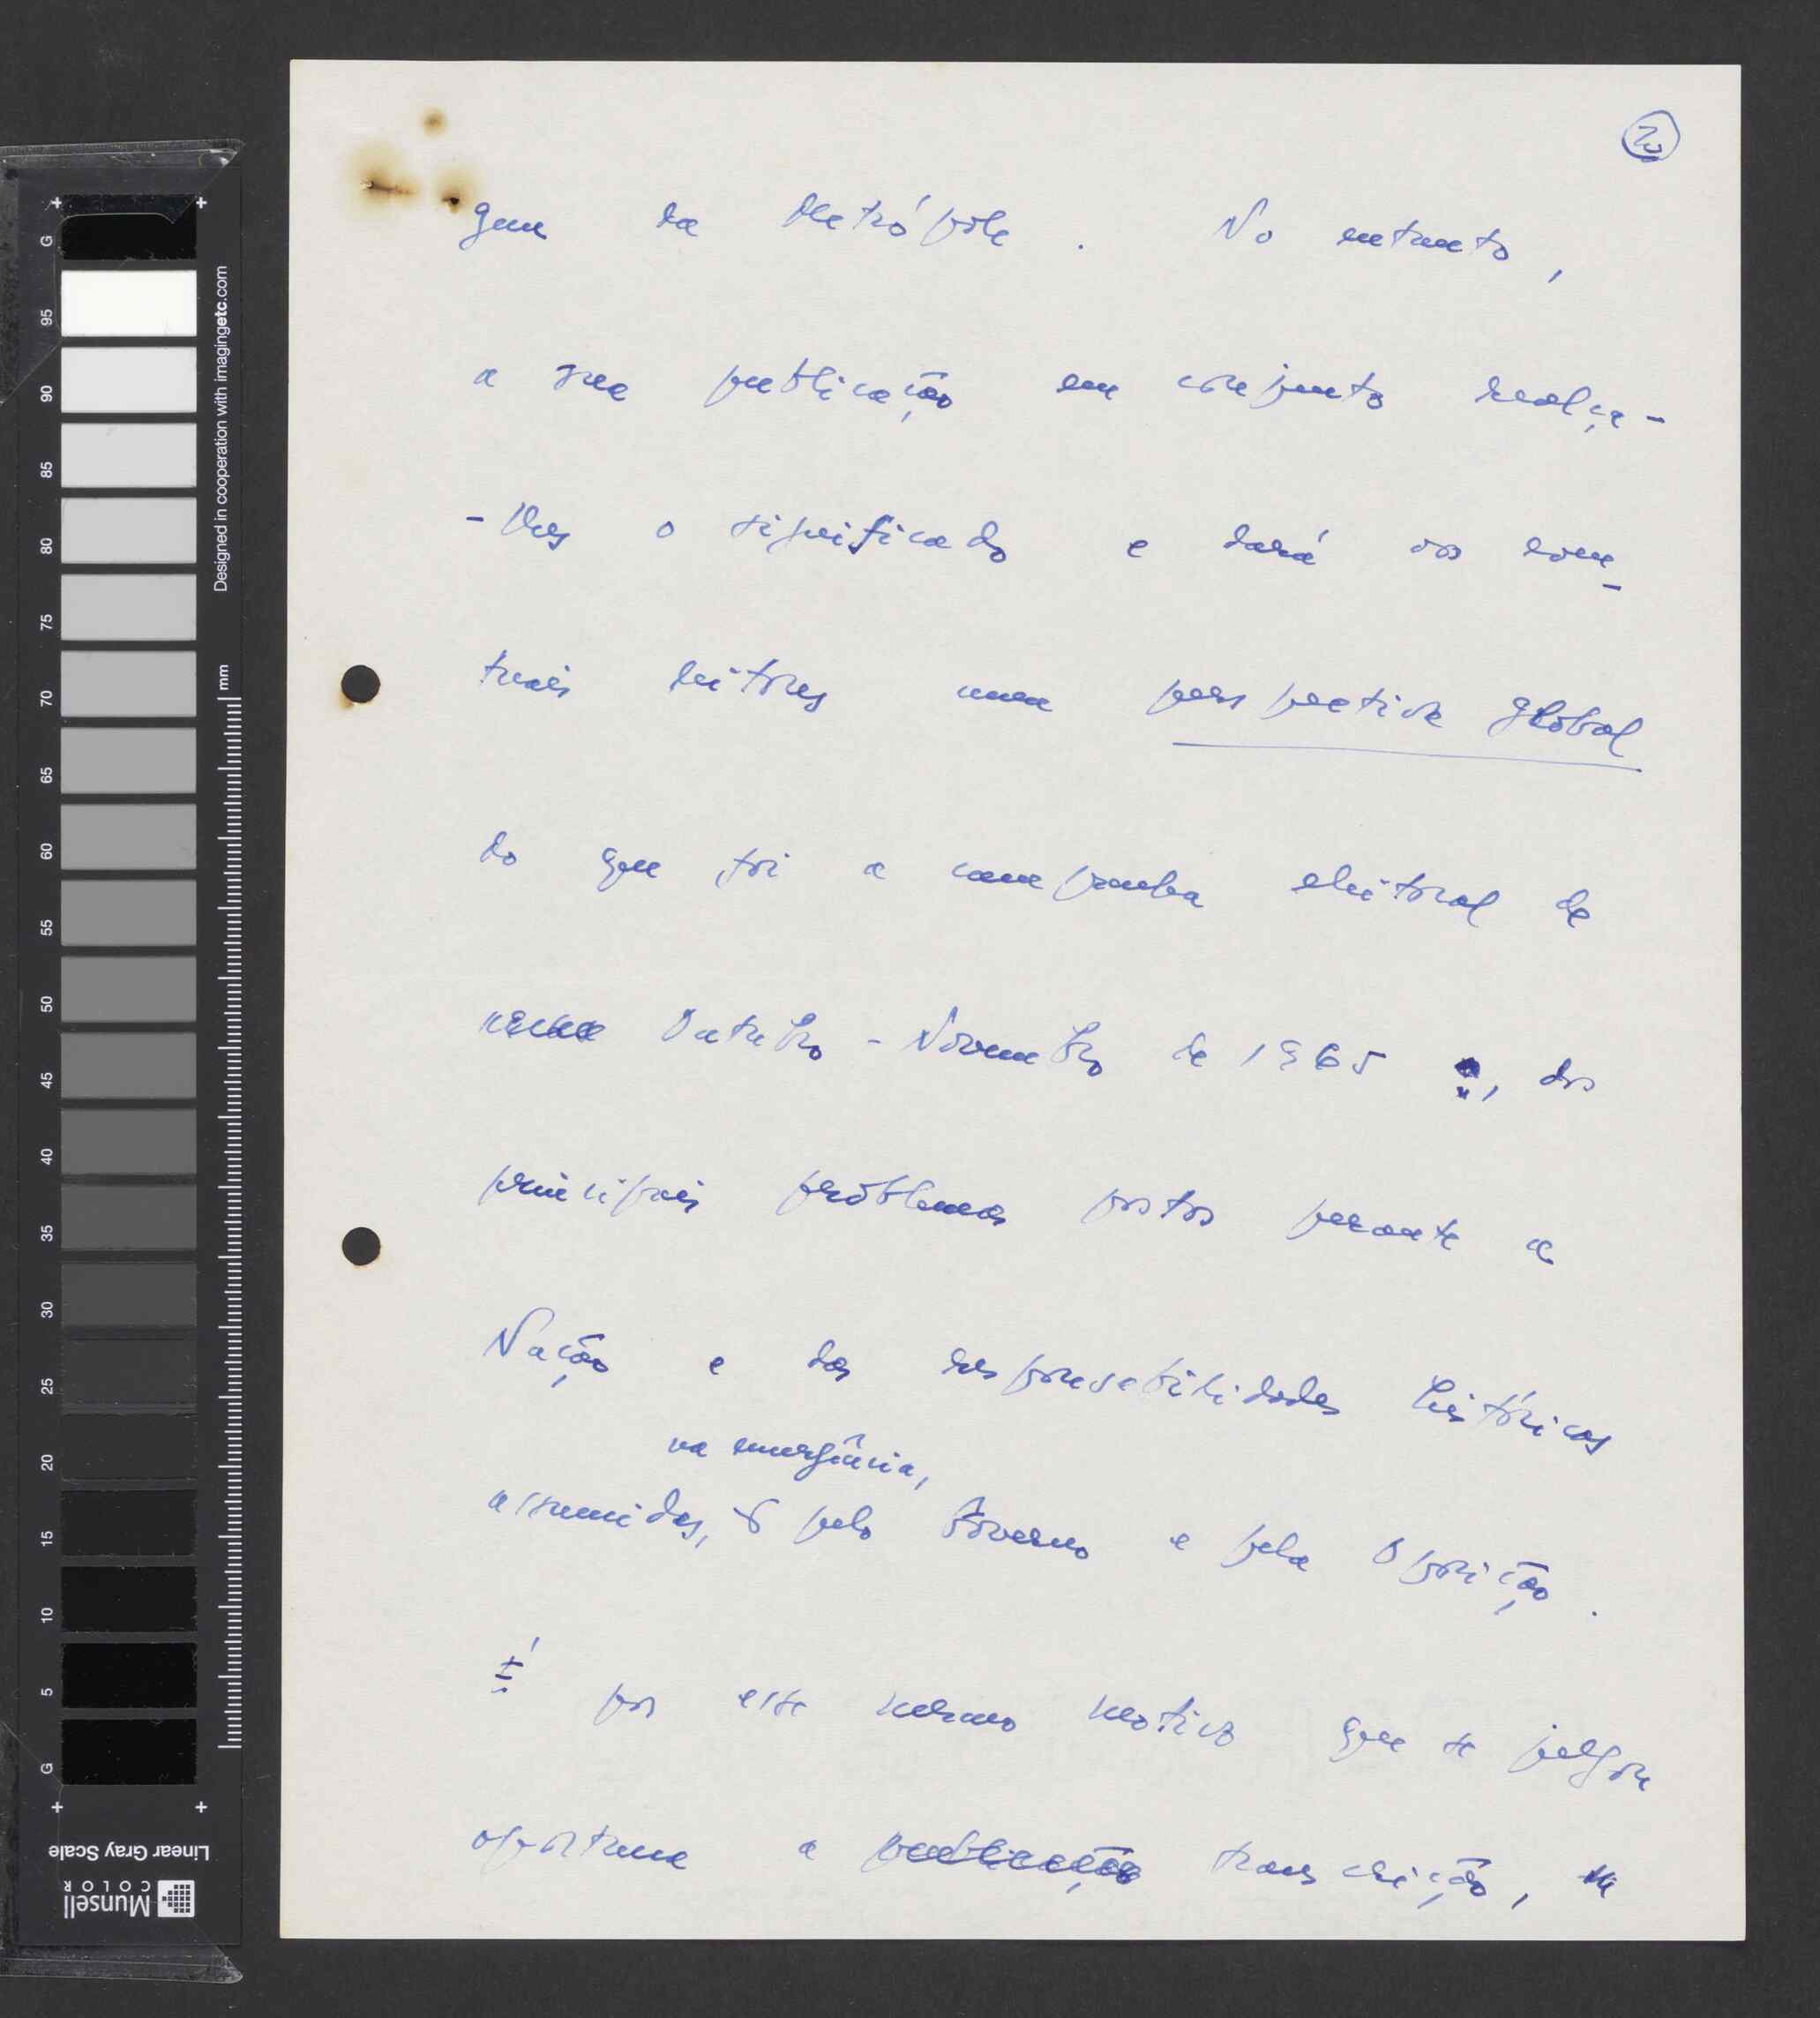 20
gem da Metrópole. No entanto,
a sua publicação em conjunto realça-
-lhes o significado e dará aos even-
tuais leitores uma perspectiva global
do que foi a campanha eleitoral de
Outubro-Novembro de 1965, dos
principais problemas postos perante a
Nação e das responsabilidades históricas
na emergência,
assumidas, pelo Governo e pela Oposição.
É por esse mesmo motivo que se julgou
oportuna a publicação transcrição,
G
95
90
85
80
75
70
65
60
55
50
45
40
35
30
25
20
15
10
5
G
Designed in cooperation with imagingetc.com
mm
Linear Gray Scale
Munsell
COLOR